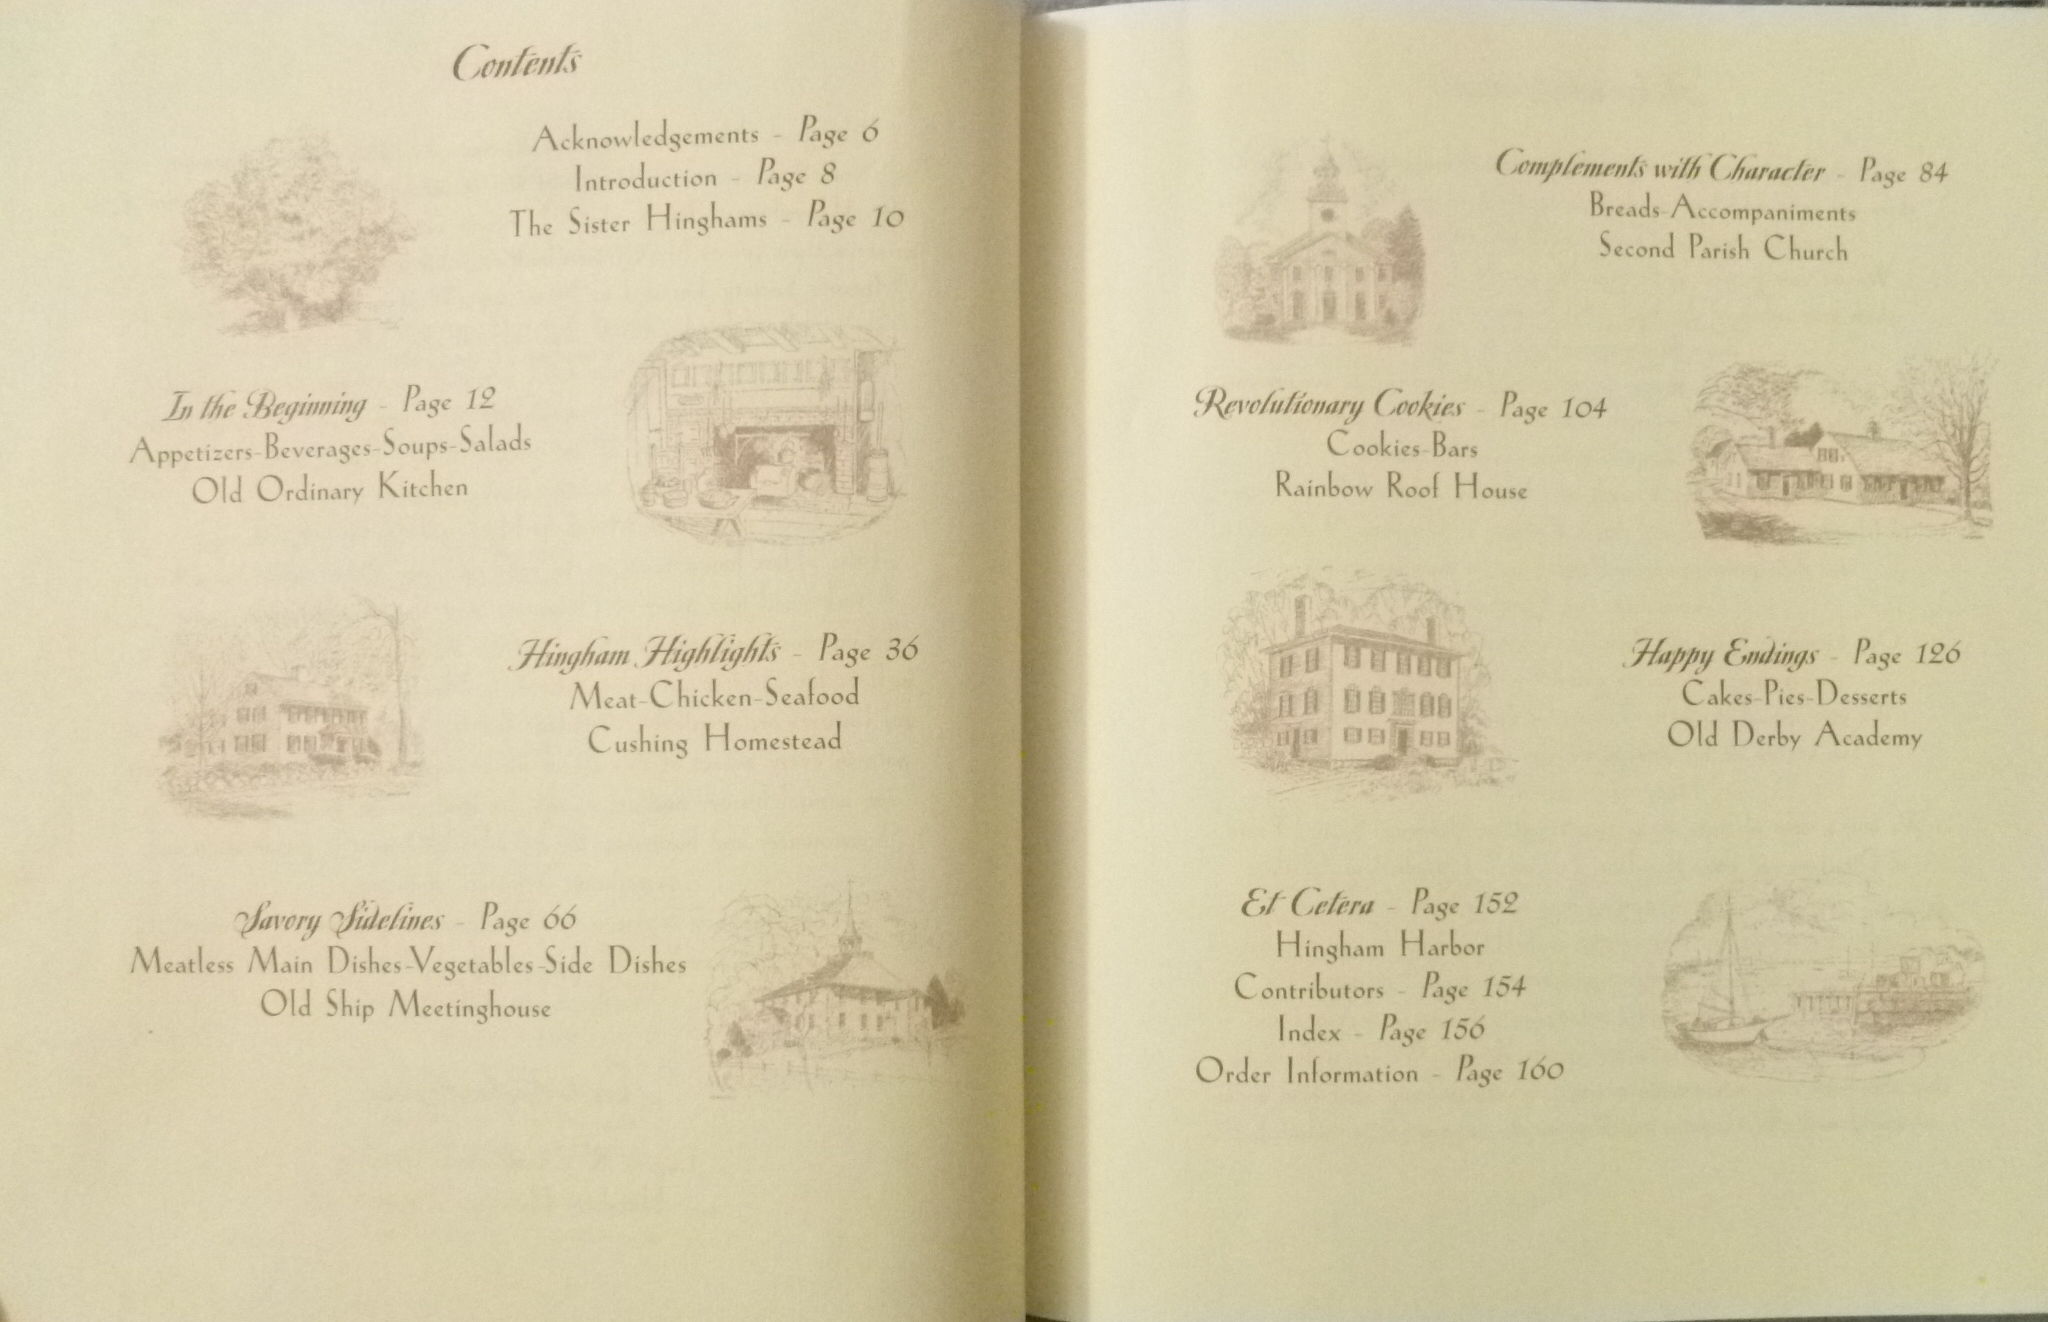 Contents
Acknowledgements - Page 6
Introduction - Page 8
The Sister Hinghams - Page 10
In the Beginning - Page 12
Appetizers-Beverages-Soups-Salads
Old Ordinary Kitchen
Hingham Highlights - Page 36
Meat-Chicken-Seafood
Cushing Homestead
Savory Sidelines - Page 66
Meatless Main Dishes-Vegetables-Side Dishes
Old Ship Meetinghouse
Complements with Character - Page 84
Breads-Accompaniments
Second Parish Church
Revolutionary Cookies - Page 104
Cookies-Bars
Rainbow Roof House
Happy Endings - Page 126
Cakes-Pies-Desserts
Old Derby Academy
Et Cetera - Page 152
Hingham Harbor
Contributors - Page 154
Index - Page 156
Order Information - Page 160